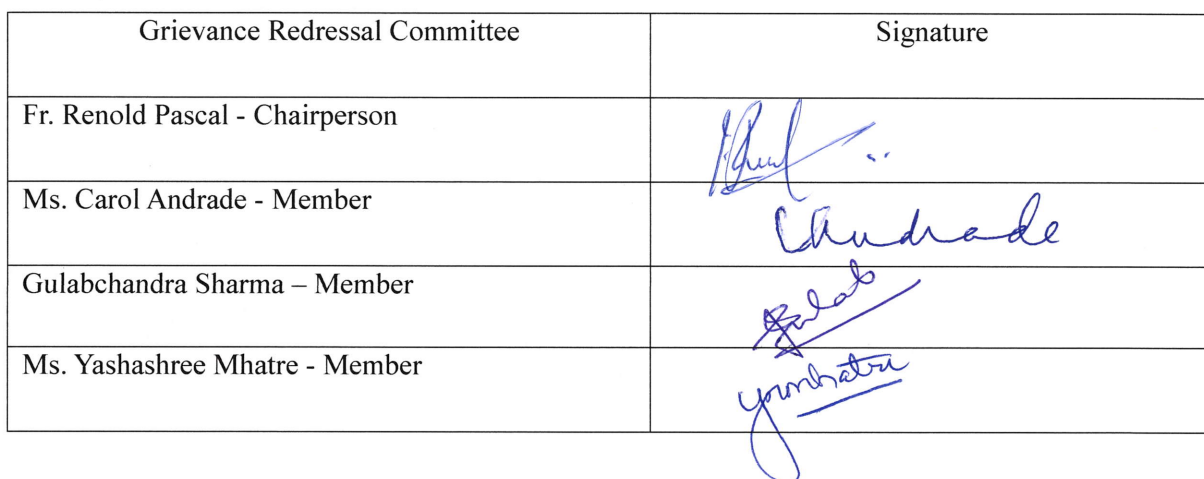 Grievance Redressal Committee Signature
Fr. Renold Pascal - Chairperson
Ms. Carol Andrade - Member CAndrade
Gulabchandra Sharma – Member Gulab
Ms. Yashashree Mhatre - Member